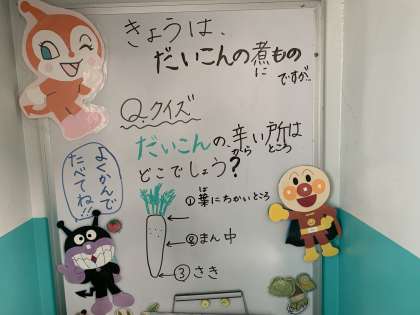 きょうは、
だいこんの煮もの
に
ですが‥
Q.クイズ
だいこんの、辛い所は
から ところ
どこでしょう?
よくかんで
たべてね!!
①葉にちかいところ
は
②まん中
③さき